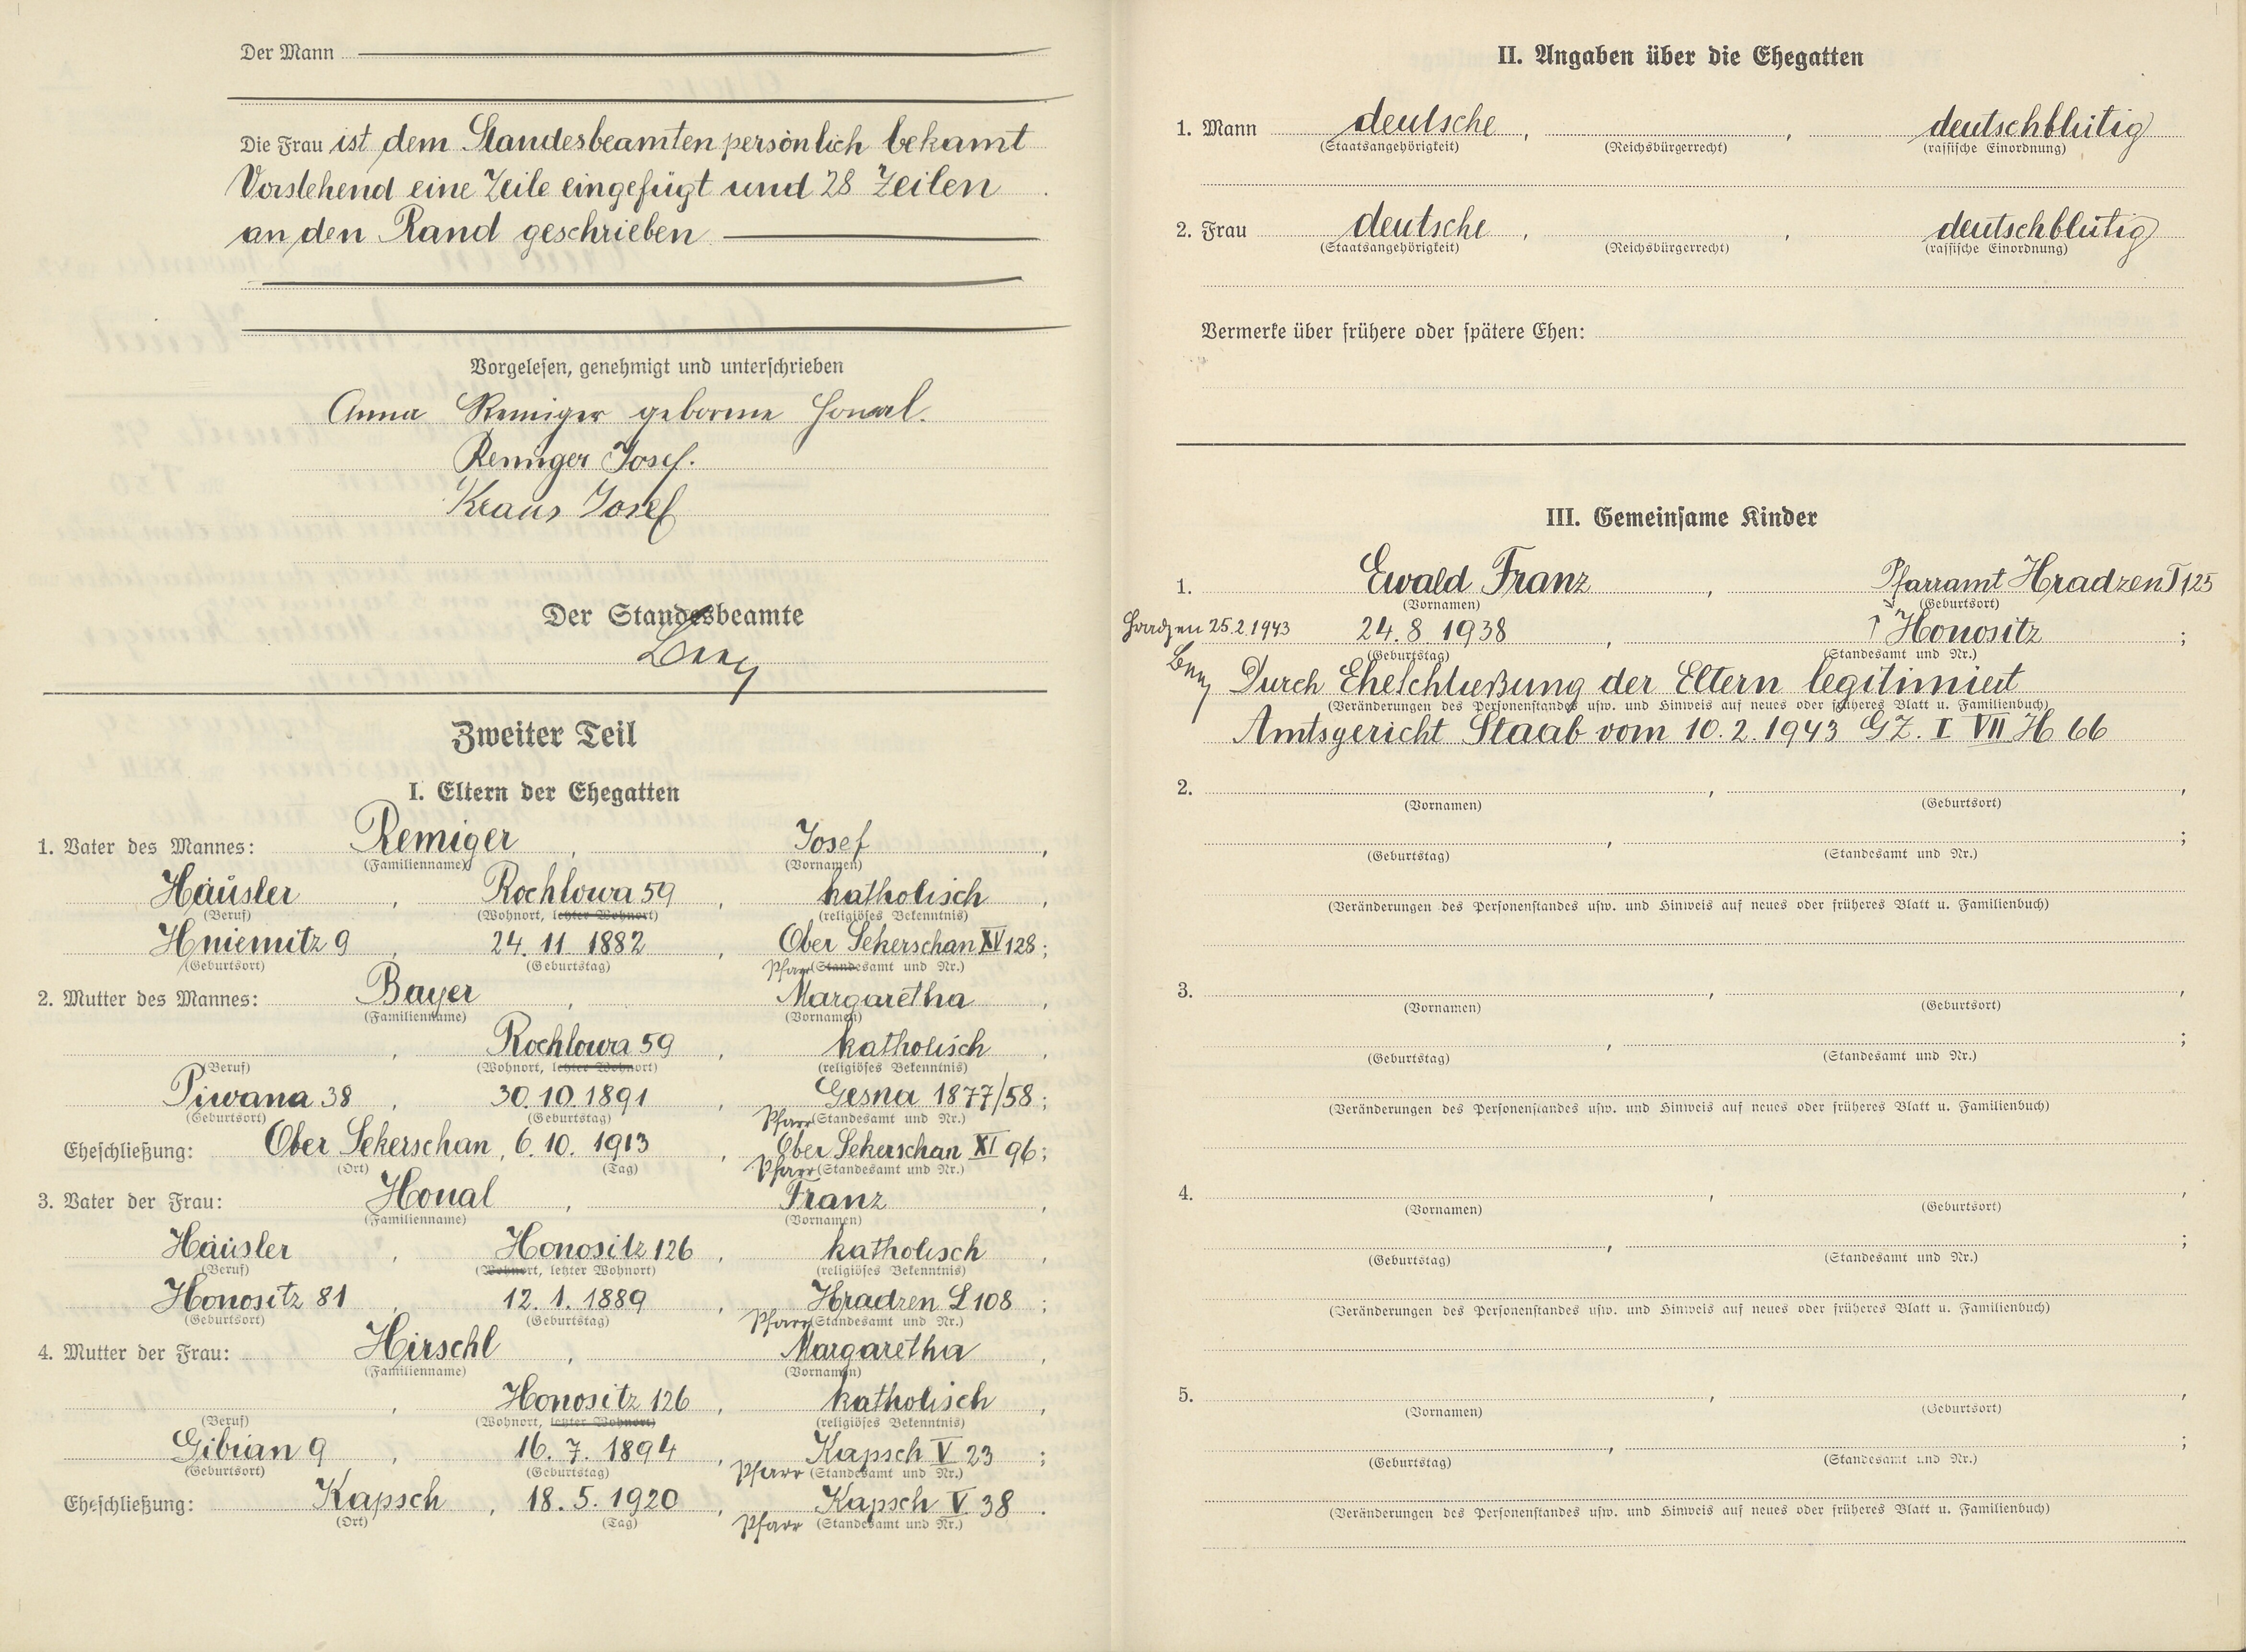 Der Mann
Die Frau ist dem Standesbeamten persönlich bekamt
Vorstehend eine Zeile eingefügt und 28 Zeilen
an den Rand geschrieben
Vorgelesen, genehmigt und unterschrieben
Anna Remiger geborene Honal.
Remiger Josef.
Kraus Josef
Der Standesbeamte
Zweiter Teil
I. Eltern der Ehegatten
1. Vater des Mannes: Remiger, Josef,
(Familienname) (Vornamen)
Häusler, Rochlowa 59, katholisch,
(Beruf) (Wohnort, letzter Wohnort) (religiöses Bekenntnis)
Hniemitz 9, 24. 11. 1882, Ober Sekerschan XV 128;
(Geburtsort) (Geburtstag) Pfarr (Standesamt und Nr.)
2. Mutter des Mannes: Bayer, Margaretha,
(Familienname) (Vornamen)
, Rochlowa 59, katholisch,
(Beruf) (Wohnort, letzter Wohnort) (religiöses Bekenntnis)
Piwana 38, 30. 10. 1891, Gesna 1877/58;
(Geburtsort) (Geburtstag) Pfarr (Standesamt und Nr.)
Eheschließung: Ober Sekerschan, 6. 10. 1913, Ober Sekerschan XI 96;
(Ort) (Tag) Pfarr (Standesamt und Nr.)
3. Vater der Frau: Honal, Franz,
(Familienname) (Vornamen)
Häusler, Honositz 126, katholisch,
(Beruf) (Wohnort, letzter Wohnort) (religiöses Bekenntnis)
Honositz 81, 12. 1. 1889, Hradzen L 108;
(Geburtsort) (Geburtstag) Pfarr (Standesamt und Nr.)
4. Mutter der Frau: Hirschl, Margaretha,
(Familienname) (Vornamen)
, Honositz 126, katholisch,
(Beruf) (Wohnort, letzter Wohnort) (religiöses Bekenntnis)
Gibian 9, 16. 7. 1894, Kapsch V 23;
(Geburtsort) (Geburtstag) Pfarr (Standesamt und Nr.)
Eheschließung: Kapsch, 18. 5. 1920, Kapsch V 38.
(Ort) (Tag) Pfarr (Standesamt und Nr.)
II. Angaben über die Ehegatten
1. Mann deutsche, , deutschblütig
(Staatsangehörigkeit) (Reichsbürgerrecht) (rassische Einordnung)
2. Frau deutsche, , deutschblütig
(Staatsangehörigkeit) (Reichsbürgerrecht) (rassische Einordnung)
Vermerke über frühere oder spätere Ehen:
III. Gemeinsame Kinder
1. Ewald Franz, Pfarramt Hradzen T, 125
(Vornamen) (Geburtsort)
Hradzen 25.2.1943 24. 8. 1938, Honositz;
(Geburtstag) (Standesamt und Nr.)
Durch Eheschließung der Eltern legitimiert
(Veränderungen des Personenstandes usw. und Hinweis auf neues oder früheres Blatt u. Familienbuch)
Amtsgericht Staab vom 10. 2. 1943 GZ. I VII H 66
2. , ,
(Vornamen) (Geburtsort)
, ;
(Geburtstag) (Standesamt und Nr.)
(Veränderungen des Personenstandes usw. und Hinweis auf neues oder früheres Blatt u. Familienbuch)
3. , ,
(Vornamen) (Geburtsort)
, ;
(Geburtstag) (Standesamt und Nr.)
(Veränderungen des Personenstandes usw. und Hinweis auf neues oder früheres Blatt u. Familienbuch)
4. , ,
(Vornamen) (Geburtsort)
, ;
(Geburtstag) (Standesamt und Nr.)
(Veränderungen des Personenstandes usw. und Hinweis auf neues oder früheres Blatt u. Familienbuch)
5. , ,
(Vornamen) (Geburtsort)
, ;
(Geburtstag) (Standesamt und Nr.)
(Veränderungen des Personenstandes usw. und Hinweis auf neues oder früheres Blatt u. Familienbuch)